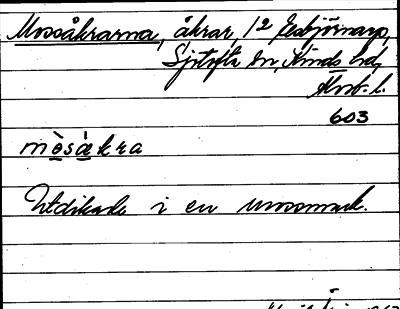 Mossåkrarna, åkrar, 12 Esbjörnarp,
Sjötofta sn, Kinds hd,
Älvsb. l.
603
mòsàkra
Utdikade i en mossmark.